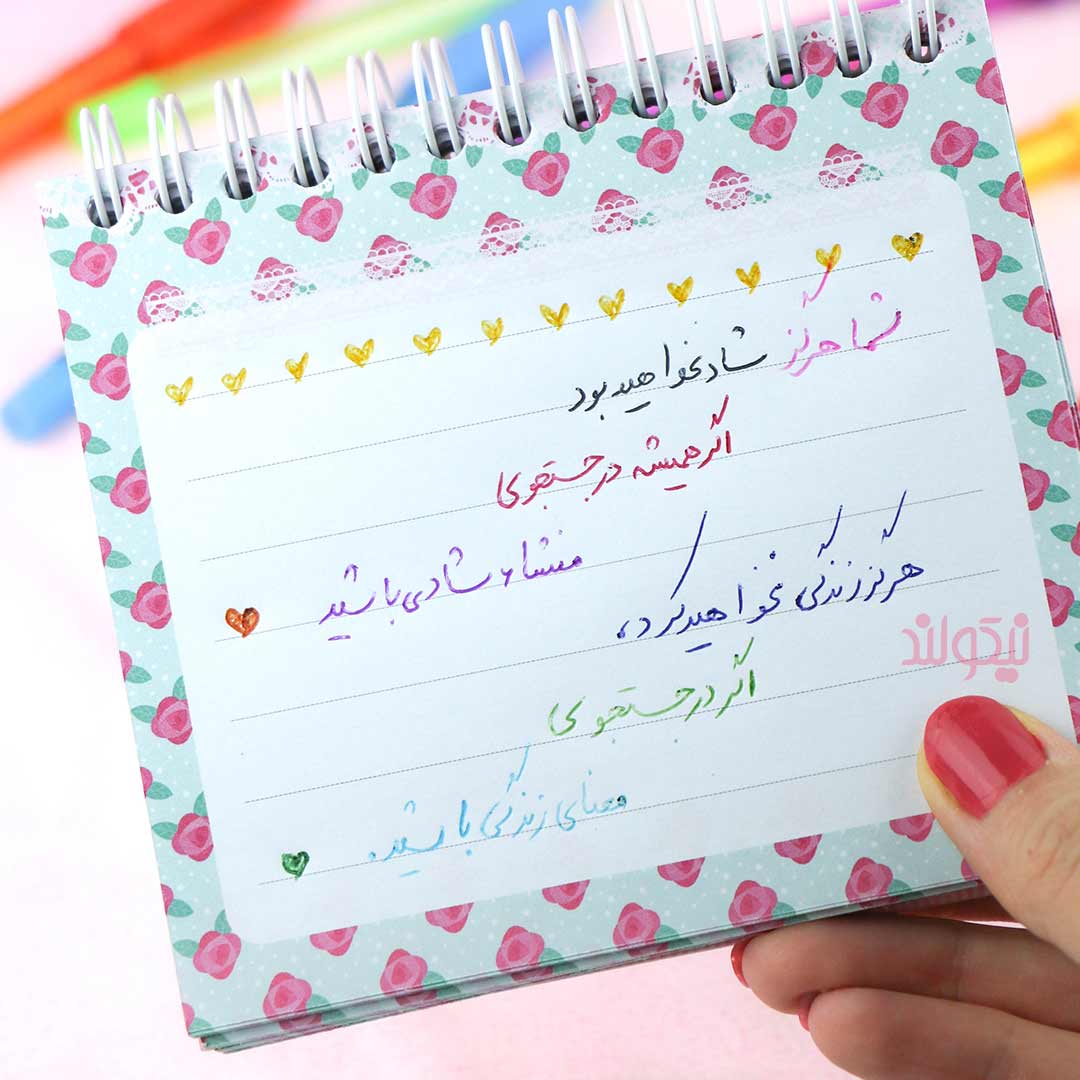 شما هرگز شاد نخواهید بود
اگر همیشه در جستجوی
منشاء شادی باشید
هرگز زندگی نخواهید کرد،
اگر در جستجوی
معنای زندگی باشید.
نیکولند